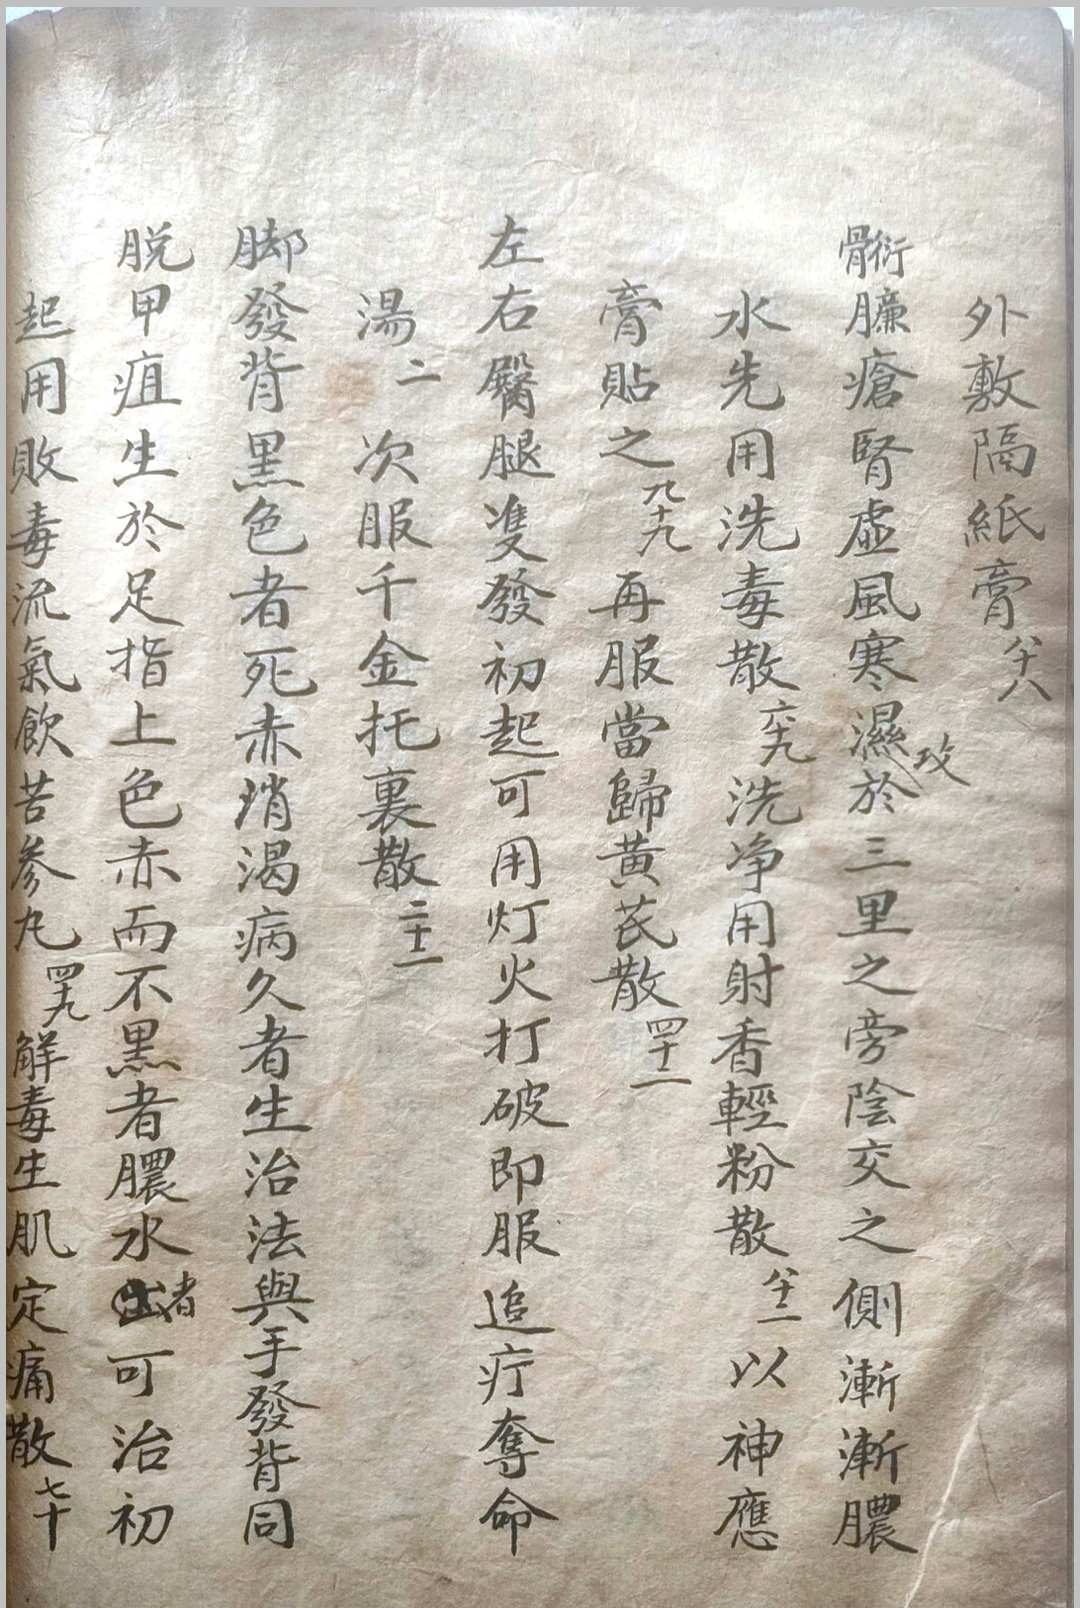 外敷隔紙膏六十八
骨𧗠臁瘡腎虛風寒濕攻於三里之旁陰交之側漸漸膿
水先用洗毒散六十九洗净用射香輕粉散六十二以神應
膏貼之九十九再服當歸黃芪散四十二
左右臀腿雙發初起可用灯火打破即服追疔奪命
湯二次服千金托裏散二十一
脚發背黑色者死赤痟渴病久者生治法與手發背同
脱甲疽生於足指上色赤而不黑者膿水出者可治初
起用敗毒流氣飲苦參丸四十九解毒生肌定痛散七十